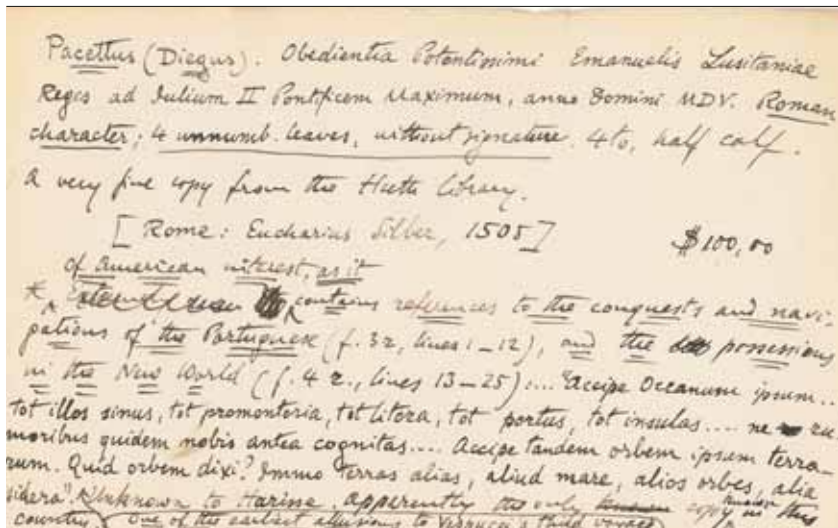 Pacettus (Diegus). Obedientia Potentissimi Emanuelis Lusitaniae
Regis ad Iulium II Pontificem Maximum, anno Domini MDV. Roman
character; 4 unnumb. leaves, without signature. 4to, half calf.
A very fine copy from the Huth library.
[Rome: Eucharius Silber, 1505] $100,00
of American interest, as it
* contains references to the conquests and navi-
gations of the Portuguese (f. 3r, lines 1-12), and the possessions
in the New World (f. 4 r., lines 13-25).... "Accipe Oceanum ipsum...
tot illos sinus, tot promontoria, tot litora, tot portus, tot insulas.... ne
moribus quidem nobis antea cognitas.... Accipe tandem orbem ipsum terra-
rum. Quid orbem dixi? Immo terras alias, aliud mare, alios orbes, alia
sidera". Unknown to Harisse, apparently the only known copy in this
country. One of the earliest allusions to Vespucci's third voyage